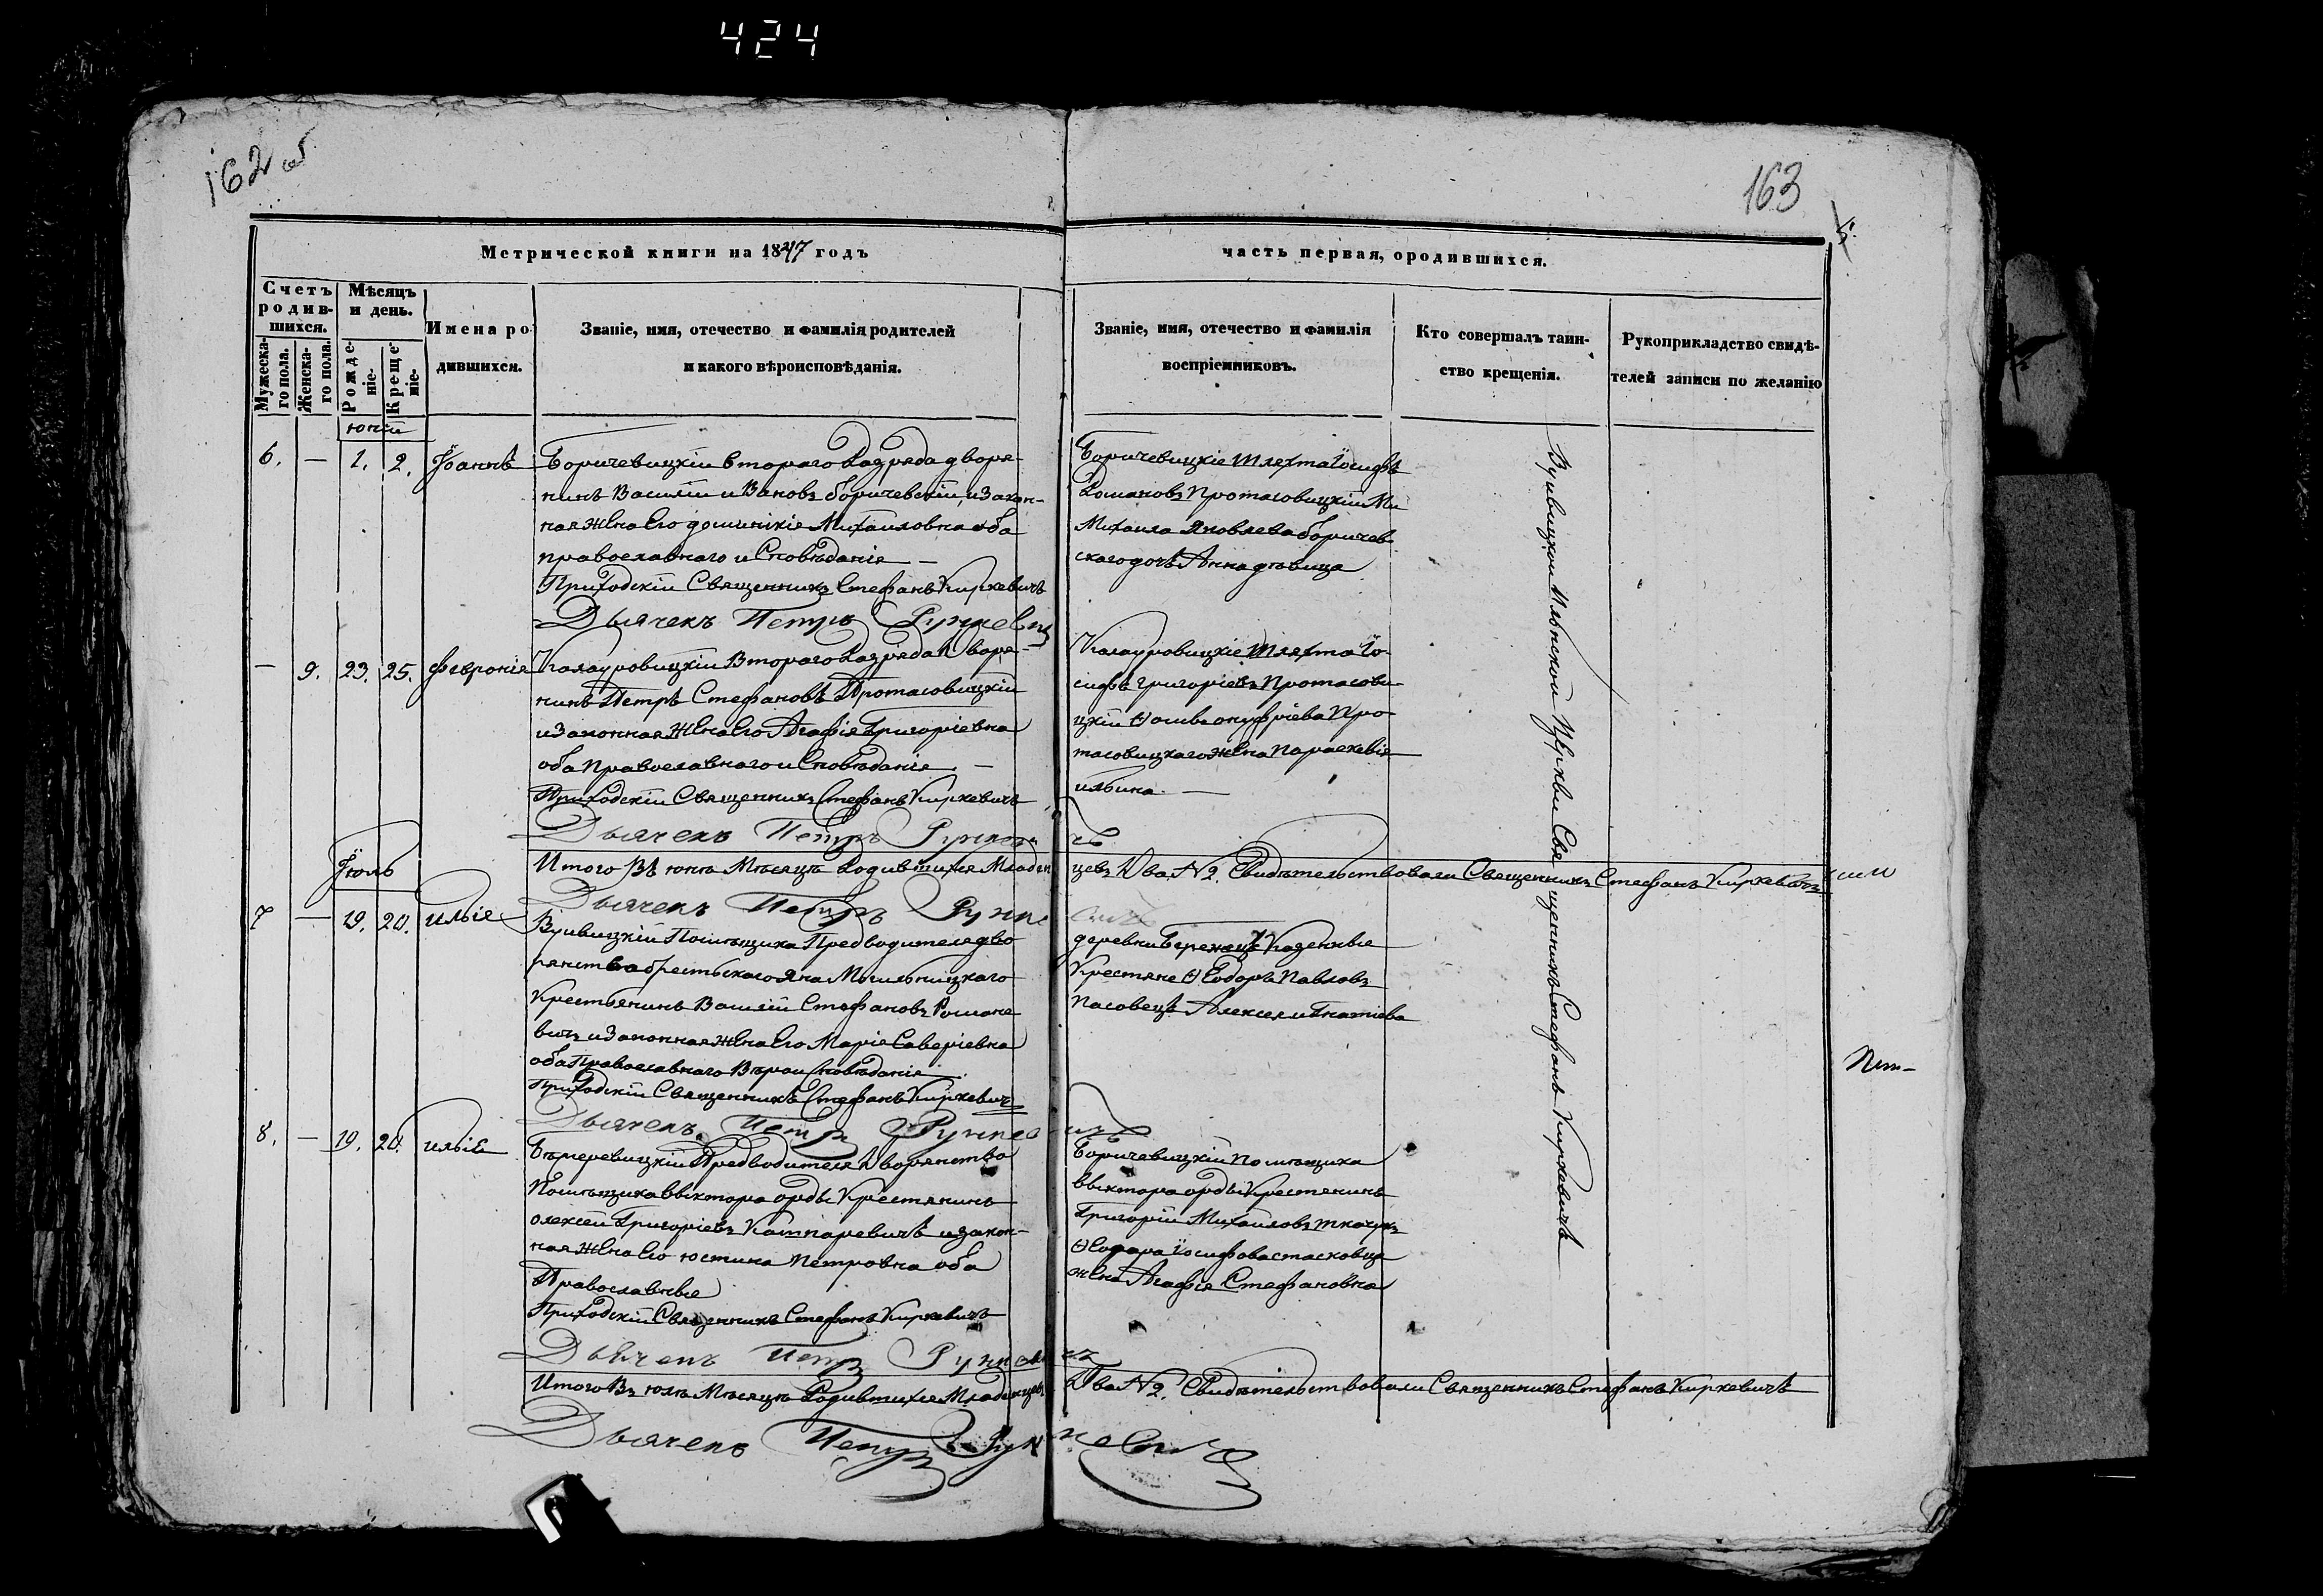 424
162 об
163
5.
Метрической книги на 1847 годъ
часть первая, ородившихся.
Счетъ родив-шихся.
Мужеска-го пола.
Женска-го пола.
Мѣсяцъ и день.
Рожде-ніе.
Креще-ніе.
Имена ро-
дившихся.
Званіе, имя, отечество и фамилія родителей
и какого вѣроисповѣданія.
Званіе, имя, отечество и фамилія
воспріемниковъ.
Кто совершалъ таин-
ство крещенія.
Рукоприкладство свидѣ-
телей записи по желанію
юній
6. — 1. 2. Іоаннъ
Боричевицкій втораго Разряда дворя-
нинъ Василій Ивановъ боричевскій, изакон-
ная жена Его доминікія Михаиловна оба
православнаго иСповѣданія —
Приходскій Священникъ Стефанъ Киркевичъ
Дьячекъ Петръ
Боричевицкіе шляхта Іосифъ
Романовъ Протасовицкій Ми
Михаила Яковлева боричев
скаго дочь Анна дѣвица
— 9. 23. 25. Февронія
Калауровицкій Втораго Разряда Дворя-
нинъ Петръ Стефановъ Протасовицкій
иЗаконная Жена Его Агафія Григоріевна
оба Православнаго иСповѣданія —
Приходскій Священникъ Стефанъ Киркевичъ
Дьячекъ Петръ
Калауровицкіе шляхта Іо-
сифъ григоріевъ Протасови-
цкій Ѳомы онуфріева Про-
тасовицкаго жена Параскевія
ильина —
Итого Въ юнѣ Мѣсяцѣ Родившихся Младен
цевъ Два № 2. Свидѣтельствовали Священникъ Стефанъ Киркевичъ
Дьячекъ Петръ
Іюль
7 — 19. 20. илія
Вуивицкій Помѣщика Предводителя дво
рянства брестьскаго Яна Мысльницкаго
Крестьянинъ Василій Стефановъ Романе
вичъ иЗаконная жена Его Марія Саверіевна
оба Православнаго ВѣроиСповѣданія
Приходскій Священникъ Стефанъ Киркевичъ
Дьячекъ Петръ
деревни Бережецъ Казенные
Крестяне Ѳеодоръ Павловъ
Пасовецъ Алексея Игнатіева
8. — 19. 20. илія
Предводителя Дворянства
Помѣщика Выктора орды Крестянинъ
олексей Григоріевъ Каспаревичъ изакон-
ная жена Его юстина Петровна оба
Православные
Приходскій Священникъ Стефанъ Киркевичъ
Дьячекъ Петръ
Боричевицкій Помѣщика
выктора орды Крестянинъ
Григорій Михаиловъ ткачукъ
Ѳеодора Іосифова стасковца
жена Агафія Стефановна
Итого Въ юлѣ Мѣсяцѣ Родившихся Младенцевъ
Два № 2. Свидѣтельствовали Священникъ Стефанъ Киркевичъ
Дьячекъ Петръ
Вуивицкой Ильинской Церкви Священникъ Стефанъ Киркевичъ